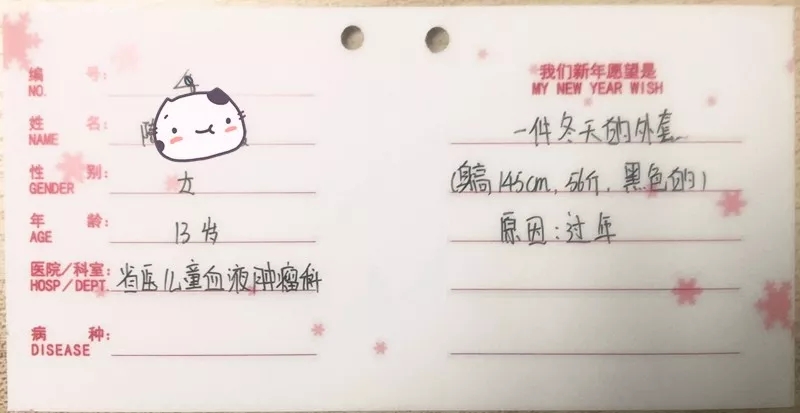 编 号:
NO.
姓 名:
NAME
性 别: 女
GENDER
年 龄:
AGE 13岁
医院/科室:
HOSP/DEPT. 省医儿童血液肿瘤科
病 种:
DISEASE
我们新年愿望是
MY NEW YEAR WISH
一件冬天的外套
(身高145cm, 56斤, 黑色的)
原因:过年